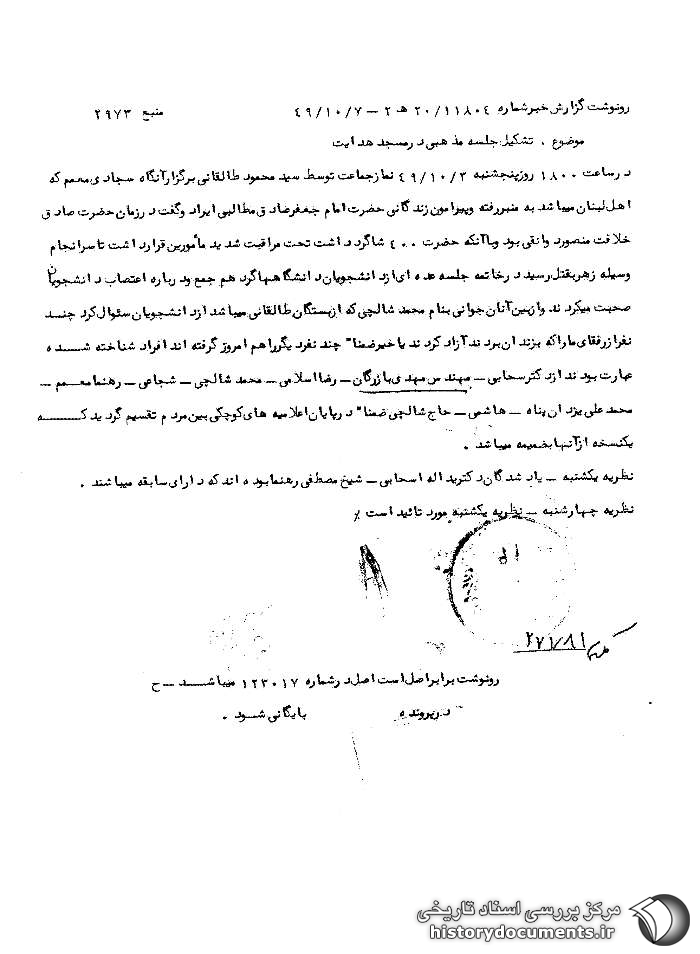 رونوشت گزارش خبر شماره ۲۰/۱۱۸۰۴ هـ ۲ – ۴۹/۱۰/۷ منبع ۲۹۷۳
موضوع . تشکیل جلسه مذهبی در مسجد هدایت
در ساعت ۱۸۰۰ روز پنجشنبه ۴۹/۱۰/۳ نماز جماعت توسط سید محمود طالقانی برگزار آنگاه سجادی معمم که
اهل لبنان میباشد به منبر رفته و پیرامون زندگانی حضرت امام جعفر صادق مطالبی ایراد و گفت در زمان حضرت صادق
خلافت منصور دوانقی بود و با آنکه حضرت ۴۰۰ شاگرد داشت تحت مراقبت شدید مأمورین قرار داشت تا سرانجام
وسیله زهر بقتل رسید در خاتمه جلسه عده ای از دانشجویان دانشگاهها گرد هم جمع و درباره اعتصاب دانشجویان
صحبت میکردند و از بین آنان جوانی بنام محمد شالچی که از بستگان طالقانی میباشد از دانشجویان سئوال کرد چند
نفر از رفقای ما را که بزندان بردند آزاد کردند یا خیر ضمنا" چند نفر دیگر را هم امروز گرفته اند افراد شناخته شده
عبارت بودند از دکتر سحابی – مهندس مهدی بازرگان – رضا اسلامی – محمد شالچی – شجاعی – رهنما معمم –
محمد علی یزدان پناه – هاشمی – حاج شالچی ضمنا" در پایان اعلامیه های کوچکی بین مردم تقسیم گردید که
یکنسخه از آنها بضمیمه میباشد .
نظریه یکشنبه – یاد شدگان دکتر ید اله اسحابی – شیخ مصطفی رهنما بوده اند که دارای سابقه میباشند .
نظریه چهارشنبه – نظریه یکشنبه مورد تائید است ٪
رونوشت برابر اصل است اصل در شماره ۱۲۳۰۱۷ میباشد – ح
در پرونده بایگانی شود .
مرکز بررسی اسناد تاریخی
historydocuments.ir